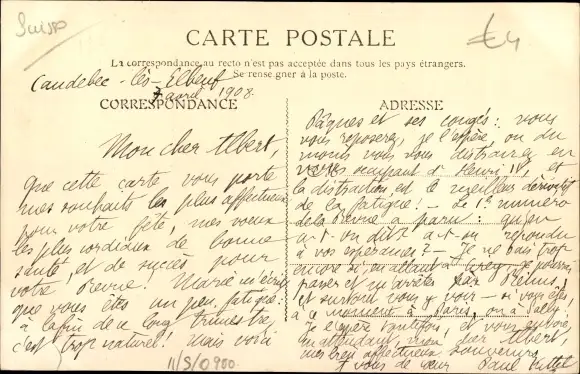 Suisse
£4
CARTE POSTALE
La correspondance au recto n'est pas acceptée dans tous les pays étrangers.
Se renseigner à la poste.
Caudebec-lès-Elbeuf
7 avril 1908.
CORRESPONDANCE
Mon cher Albert,
Que cette carte vous porte
mes souhaits les plus affectueux
pour votre fête, mes voeux
les plus cordiaux de bonne
santé, et de succès pour
votre Revue! Marie m'écrit
que vous êtes un peu fatigué
à la fin de ce long trimestre,
c'est trop naturel! mais voici
11/S/0900.
ADRESSE
Pâques et ses congés: vous
vous reposerez, je l'espère, ou du
moins vous vous distrairez en
vous occupant d'Henri IV, et
la distraction est le meilleur dérivatif
de la fatigue! - Le 1er numéro
de la Revue a paru: qu'en
a-t-on dit? a-t-on répondu
à vos espérances? - Je ne sais trop
encore si, en allant à je pourrai
passer et m'arrêter par Reims,
et surtout vous y voir - si vous êtes
à ce moment à Paris, ou à
J'espère toutefois, et vous embrasse,
en attendant, mon cher Albert,
mes bien affectueux souvenirs
à vous de coeur Paul